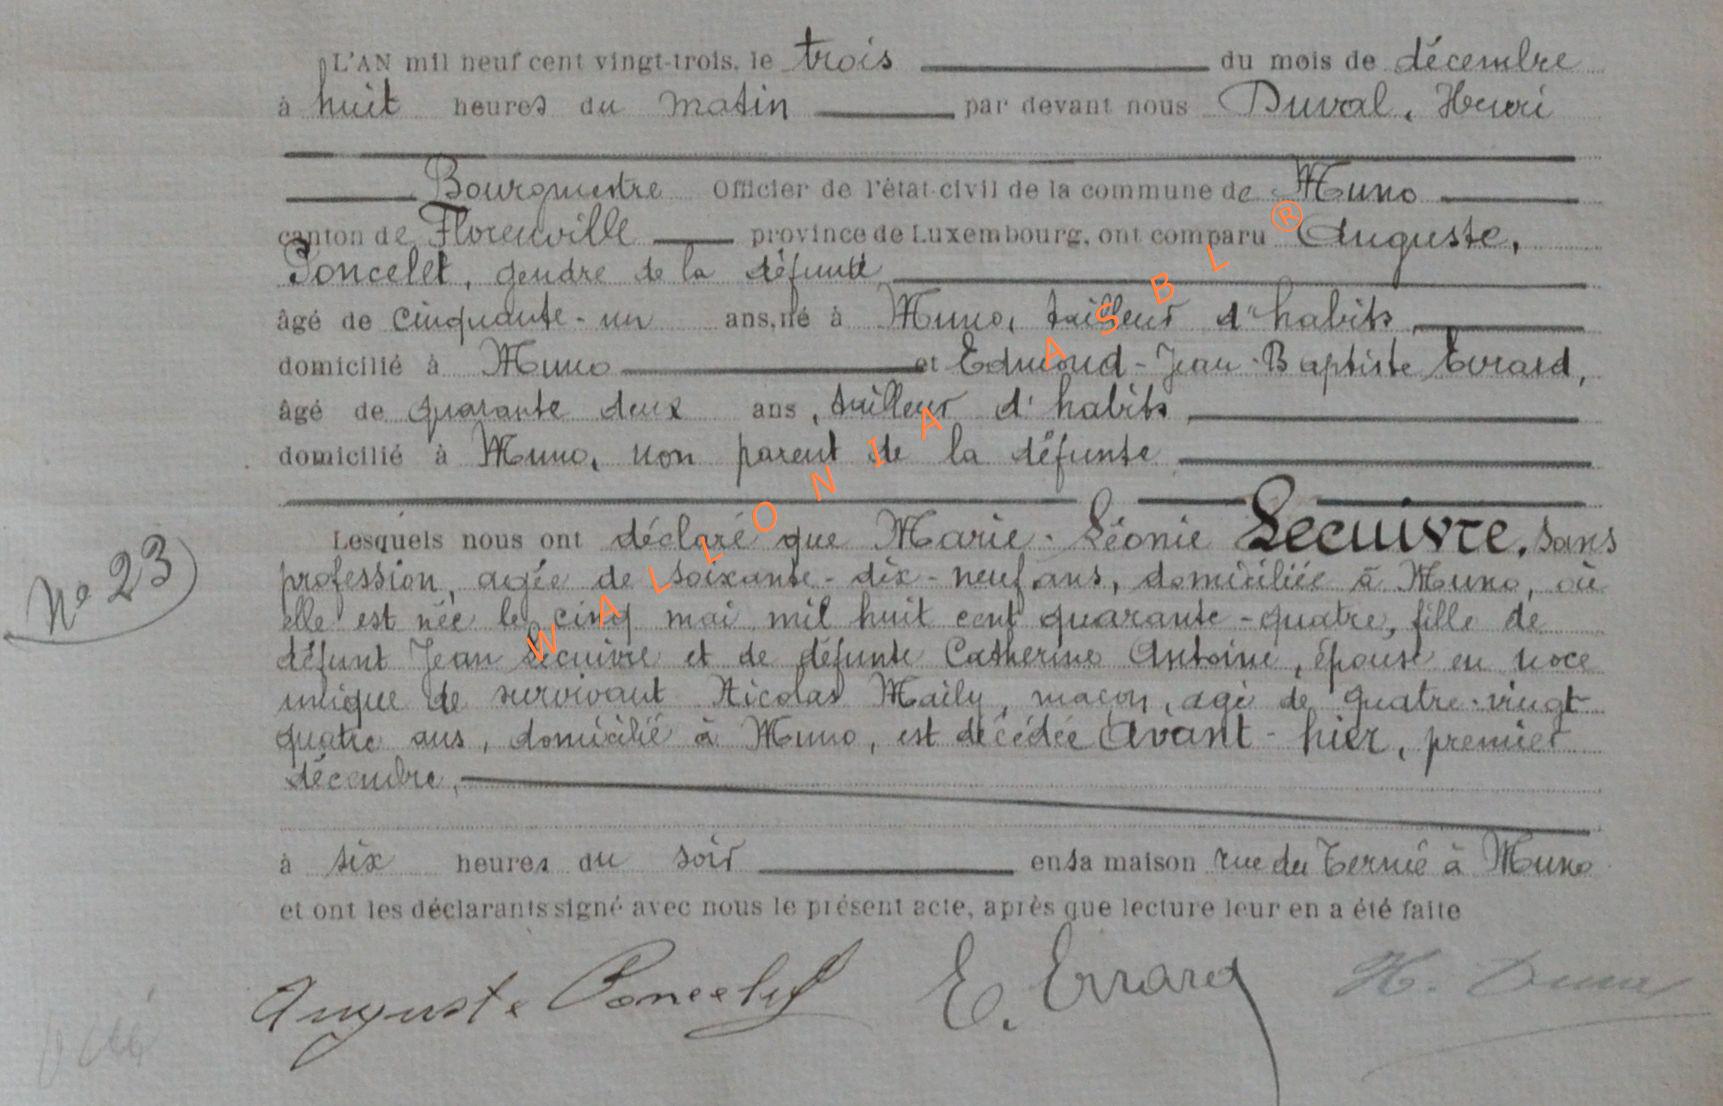 L'AN mil neuf cent vingt-trois, le trois du mois de décembre
à huit heures du matin par devant nous Duval, Henri
Bourgmestre Officier de l'état-civil de la commune de Muno
canton de Florenville province de Luxembourg, ont comparu Auguste,
Poncelet, gendre de la défunte
âgé de cinquante-un ans, né à Muno, tailleur d'habits
domicilié à Muno et Edmond-Jean-Baptiste Evrard,
âgé de quarante deux ans, tailleur d'habits
domicilié à Muno, non parent de la défunte
Lesquels nous ont déclaré que Marie-Léonie Lecuivre, sans
profession, agée de soixante-dix-neuf ans, domiciliée à Muno, où
elle est née le cinq mai mil huit cent quarante-quatre, fille de
défunt Jean Lecuivre et de défunte Catherine Antoine, épouse en noce
unique de survivant Nicolas Maily, maçon, agé de quatre-vingt
quatre ans, domicilié à Muno, est décédée avant-hier, premier
décembre,
à six heures du soir en sa maison rue du Terme à Muno
et ont les déclarants signé avec nous le présent acte, après que lecture leur en a été faite
N° 23
Auguste Poncelet E. Evrard H. Duval
WALLONIA ASBL ®